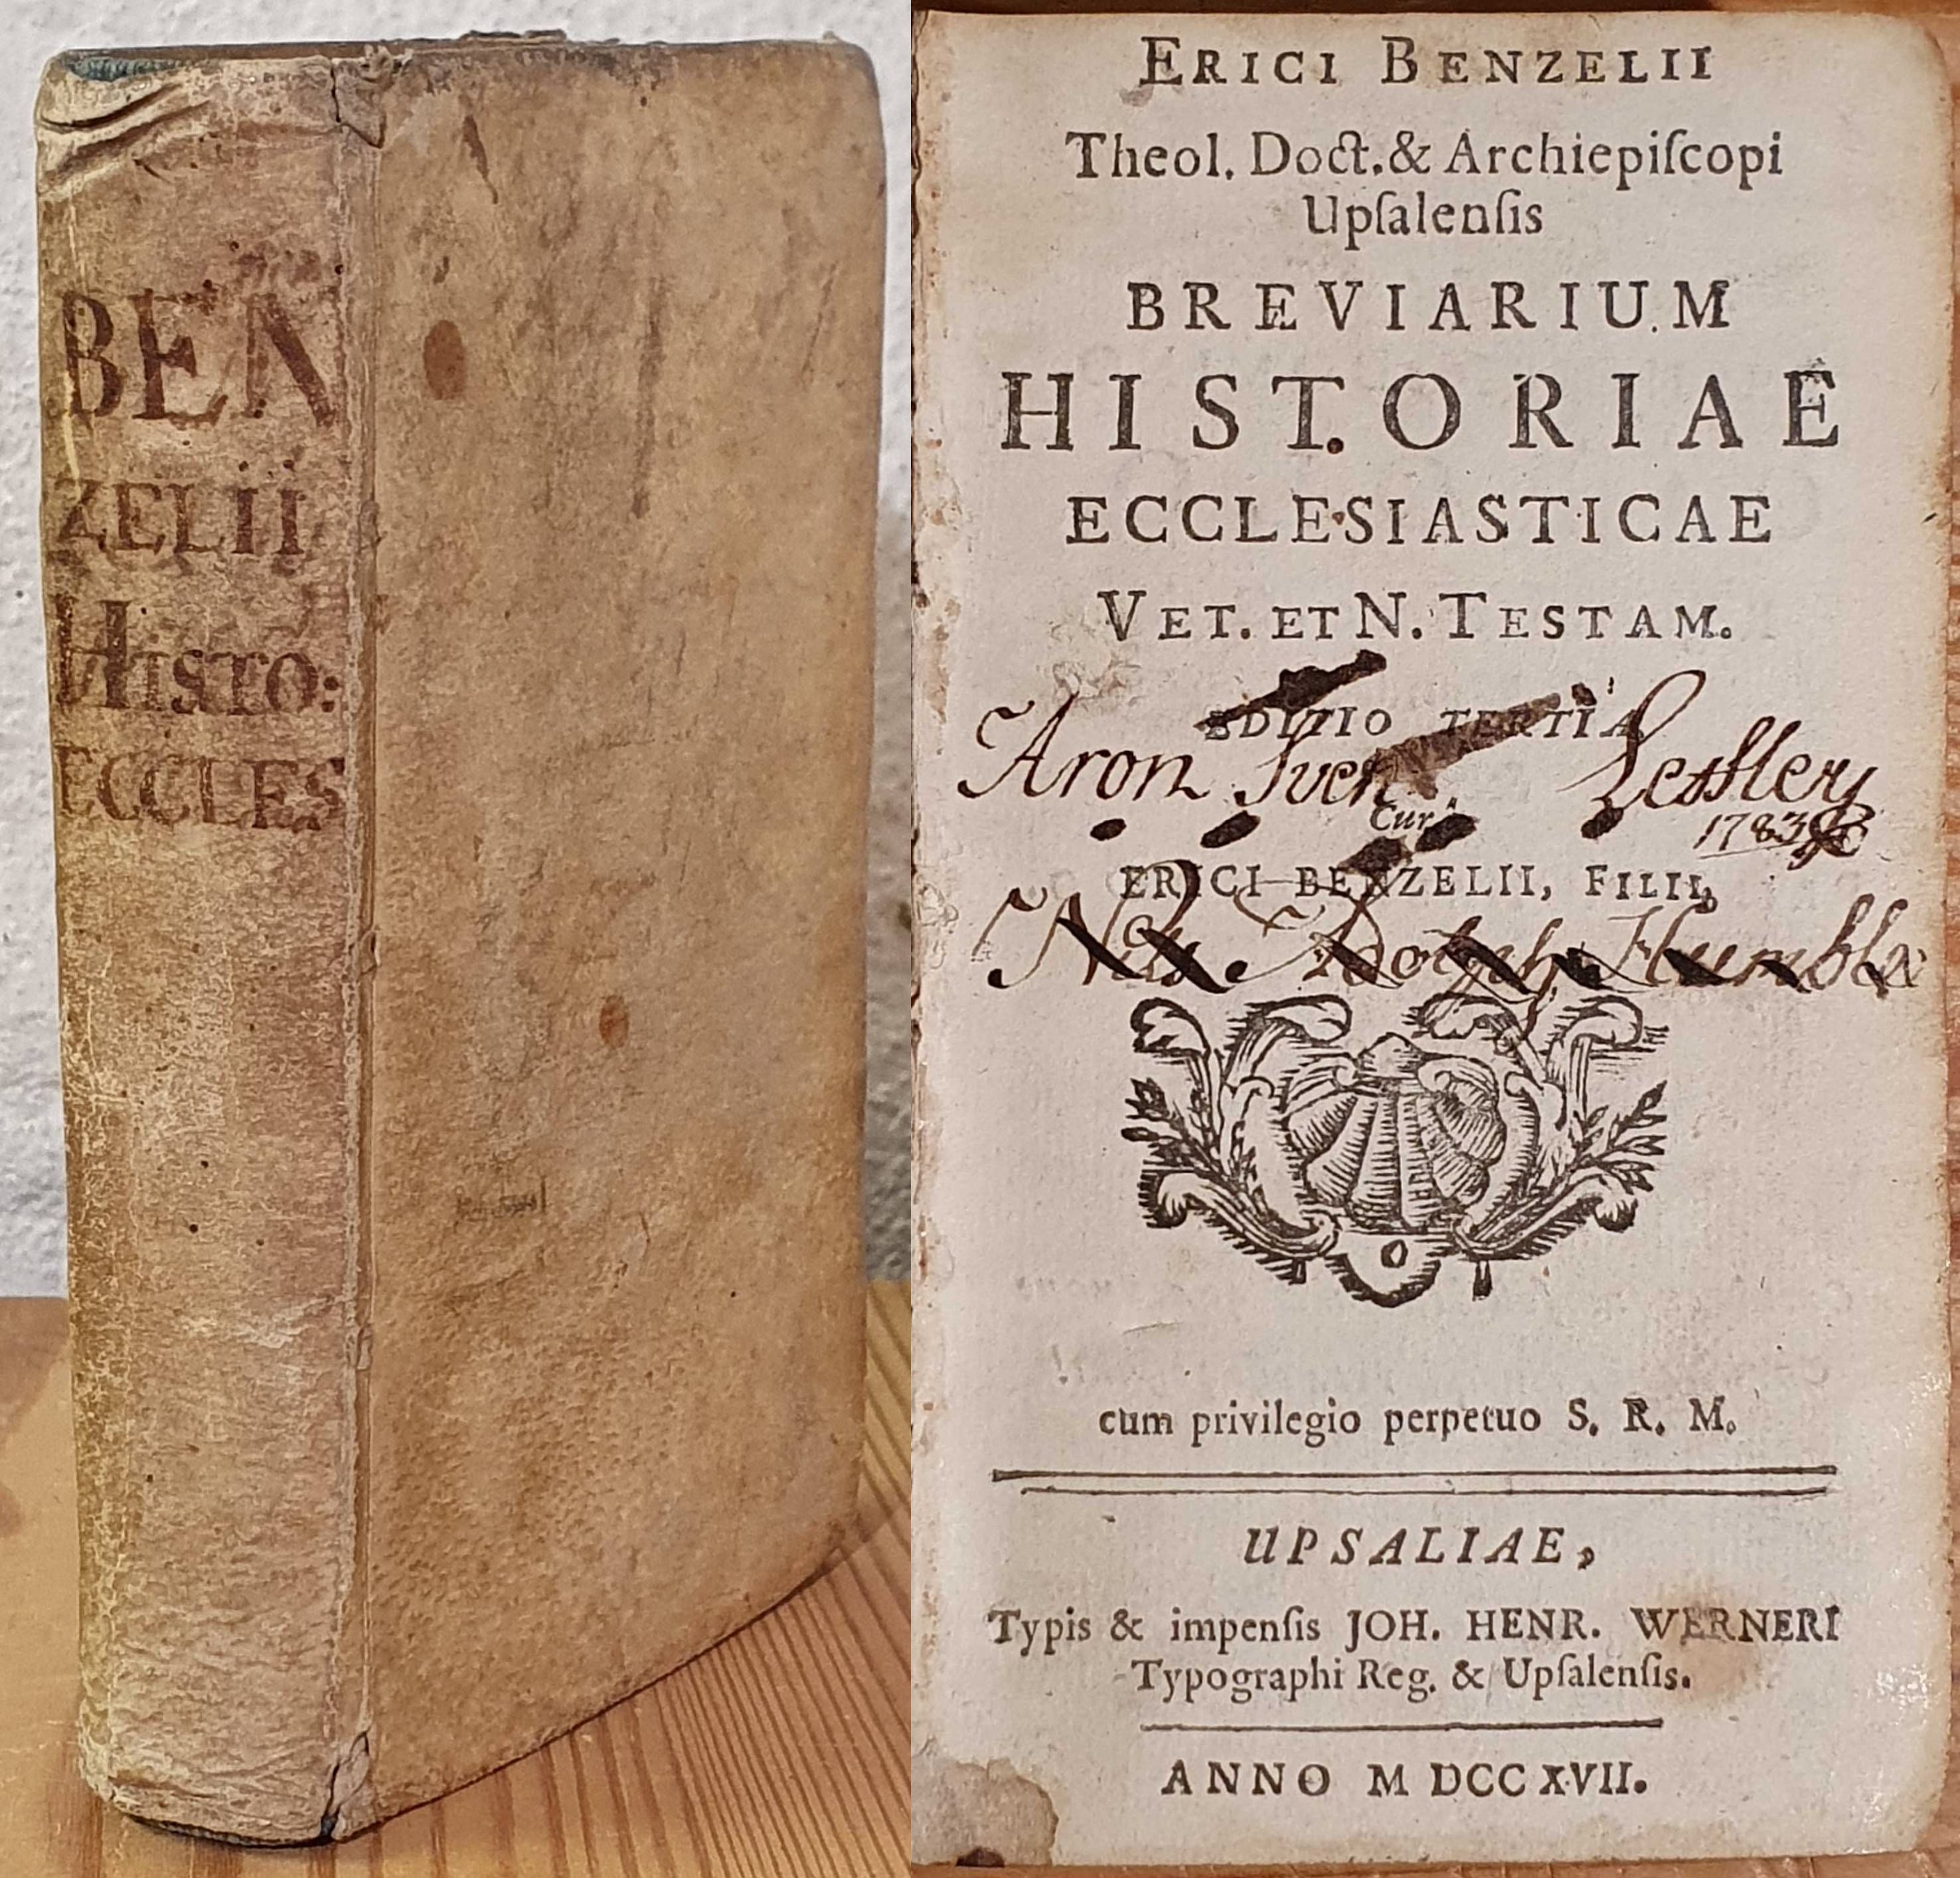 BEN
ZELII
HISTO:
ECCLES
ERICI BENZELII
Theol. Doct. & Archiepiſcopi
Upſalenſis
BREVIARIUM
HISTORIAE
ECCLESIASTICAE
VET. ET N. TESTAM.
EDITIO TERTIA
Aron Sven
Cur.
1783
ERICI BENZELII, FILII,
Nils Adolph Humbla
cum privilegio perpetuo S. R. M.
UPSALIAE,
Typis & impenſis JOH. HENR. WERNERI
Typographi Reg. & Upſalenſis.
ANNO MDCCXVII.